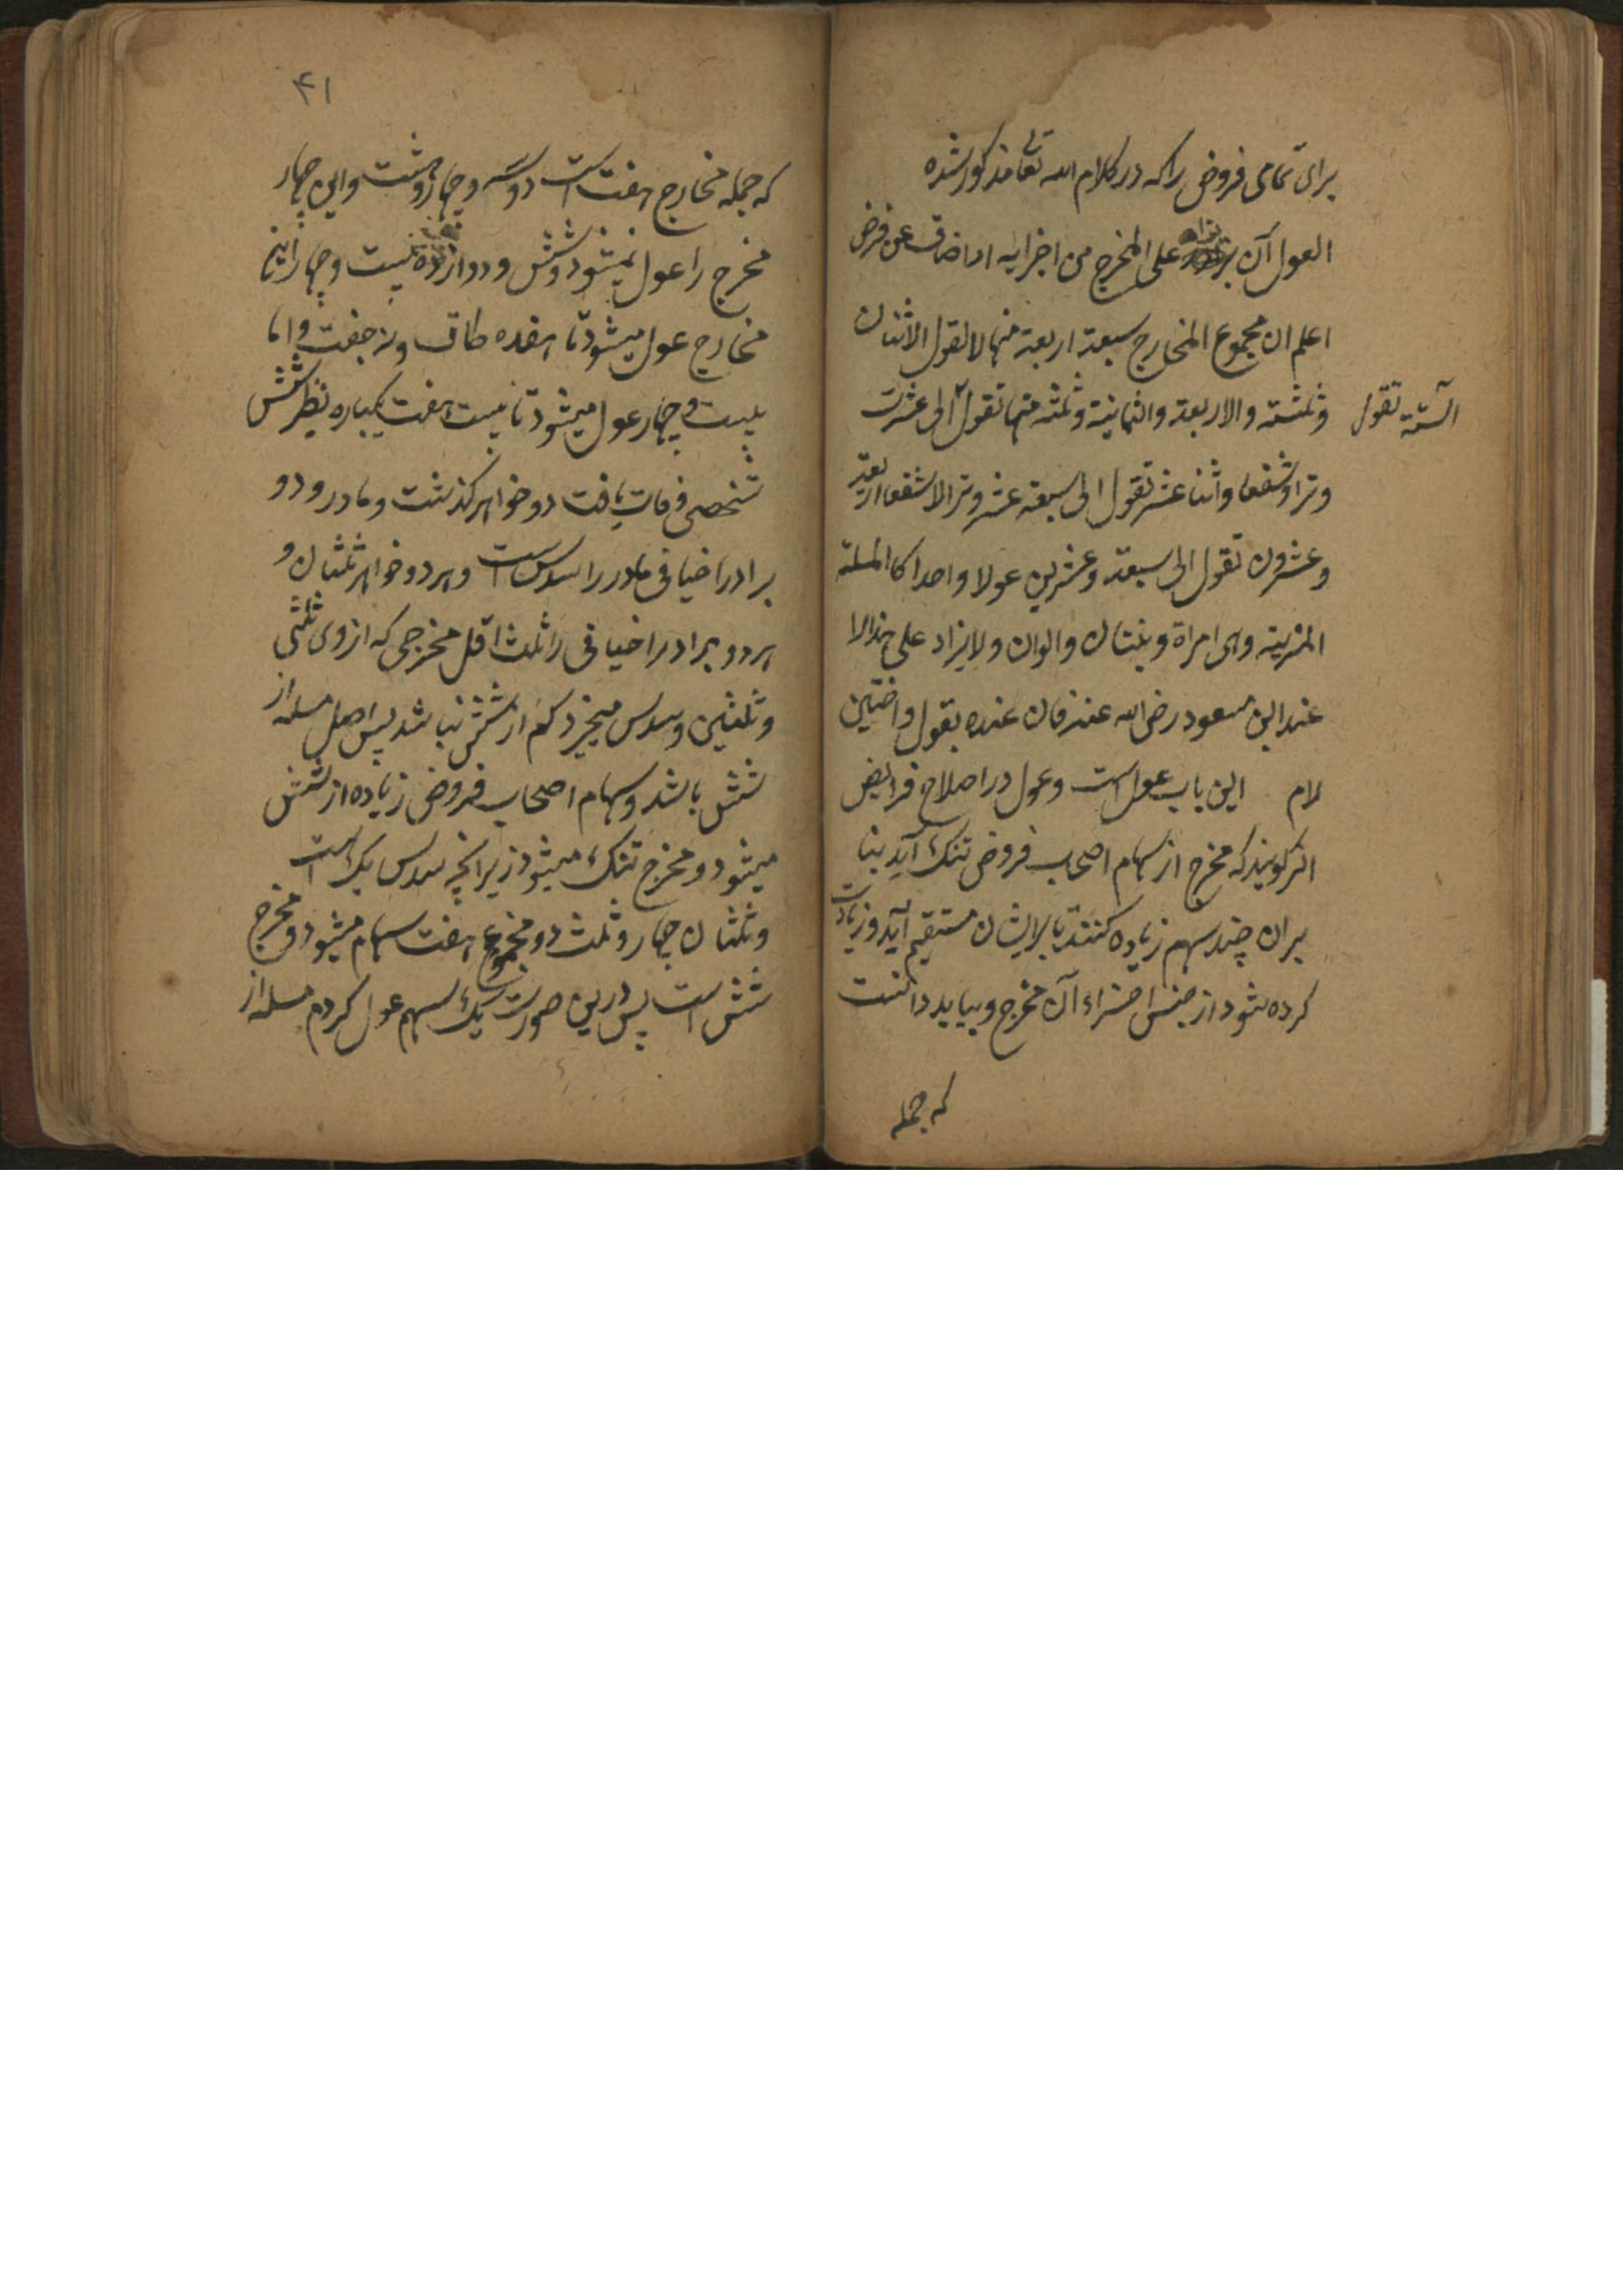 برای تمامی فروض را که در کلام الله تعا مذکور شده
العول آن یزاد علی المخرج من اجزایه اذا ضاق عن فرض
اعلم ان مجموع المخارج سبعة اربعة منها لا تقول الاثنان
وثلثه والاربعة والثمانیة وثلثه منها تقول الی عشرت
الستة تقول
وترا وشفعا واثنا عشر تقول الی سبعة عشر وترا لا شفعا اربعة
وعشرون تقول الی سبعة وعشرین عولا واحدا کا المسلة
المنبریة وهی امراة وبنتان وابوان ولا یزاد علی هذا الا
عند ابن مسعود رضی الله عنه فان عنده یقول واحد ثلثین
لام این باب عول است وعول در اصلاح فرایض
انرا گویند که مخرج از سهام اصحاب فروض تنگ آید بنا
بران چند سهم زیاده کنند تا برایشان مستقیم آید وزیادت
کرده شود از جنس اجزاء آن مخرج وبباید دانست
که جمله
۴۱
که جمله مخارج هفت است دو وسه وچهار وهشت واین چهار
مخرج را عول نمیشود وشش ودوازده بیست وچهار این
مخارج عول میشود تا هفده طاق ونه جفت واما
بیست وچهار عول میشود تا بیست هفت یکباره نظیر شش
شخصی وفات یافت دو خواهر گذشت ومادر ودو
برادر اخیافی مادر را سدس است وهر دو خواهر ثلثان و
هر دو برادر اخیافی را ثلث اقل مخرجی که ازوی ثلثی
وثلثین وسدس میخیزد کم از شش نباشد پس اصل مسله از
شش باشد وسهام اصحاب فروض زیاده از شش
میشود ومخرج تنگ میشود زیرانچه سدس یک است
وثلثان چهار وثلث دو مجموع هفت سهام میشود ومخرج
شش است پس درین صورت یک سهم عول کردم مسله از